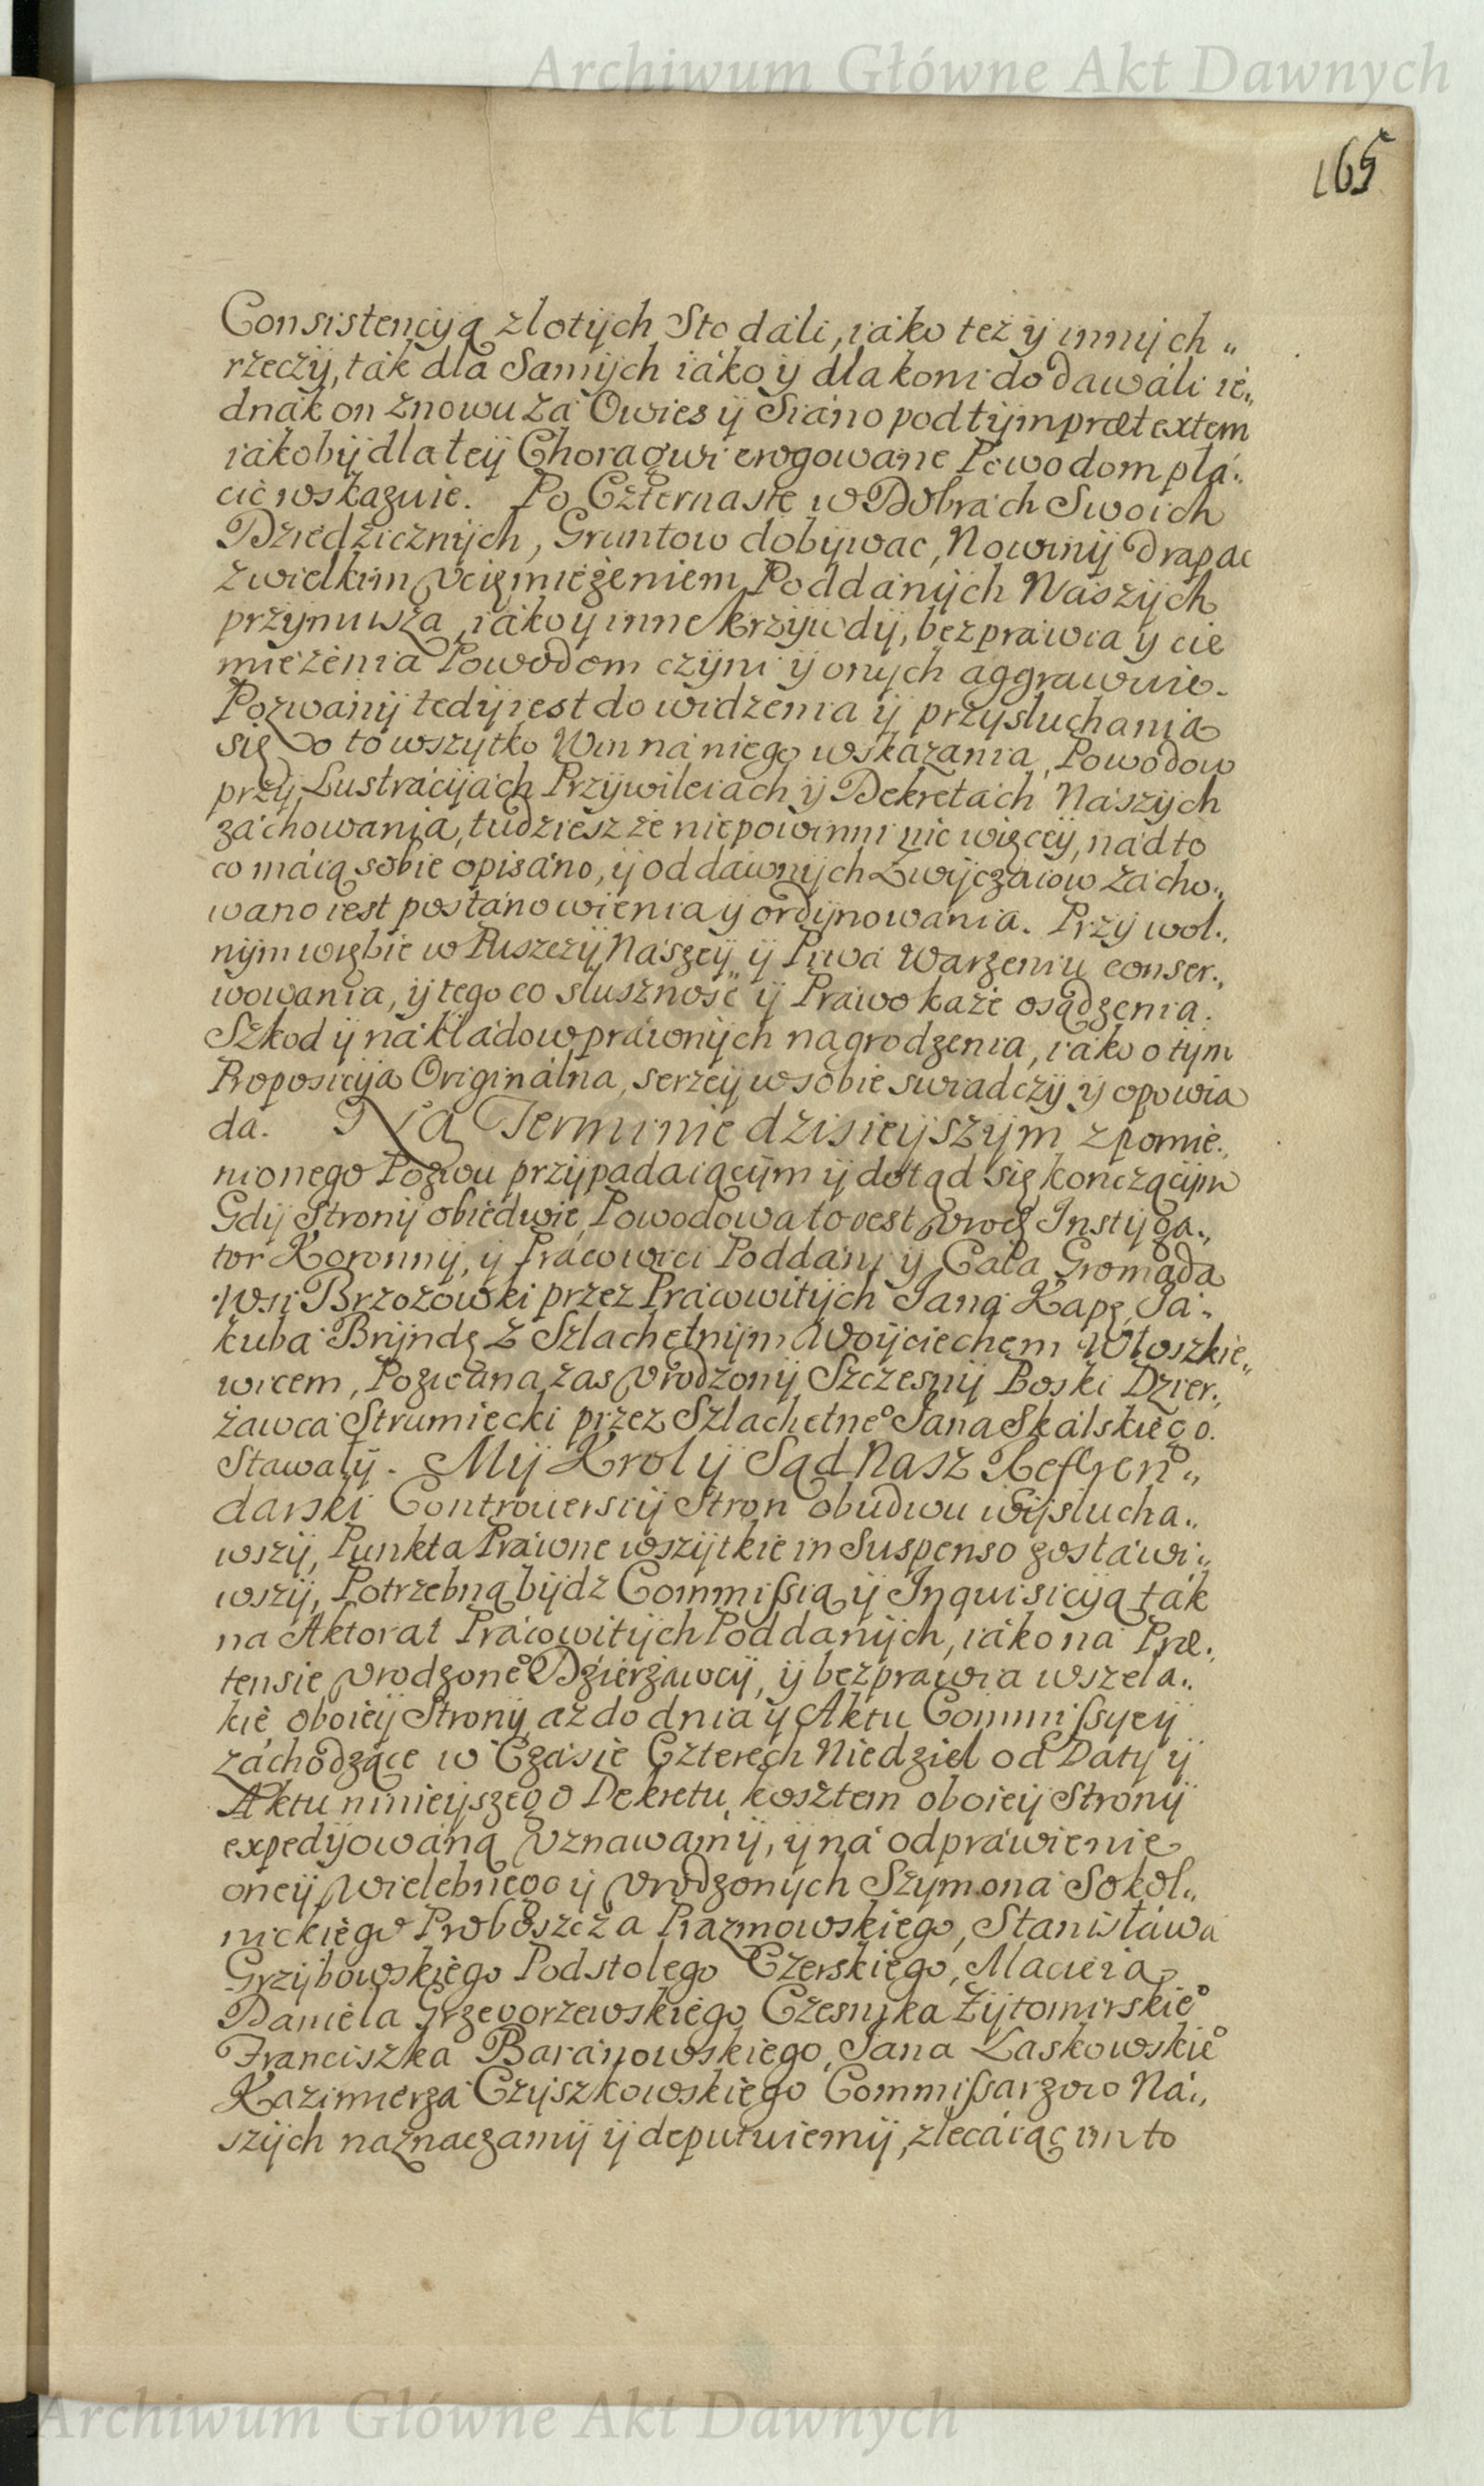 Archiwum Główne Akt Dawnych
165
Consistencyą złotych Sto dáli, iáko też ÿ innych „
rzeczÿ, ták dla Samÿch iáko ÿ dla koni dodawáli ie„
dnák on znowu zá Owies ÿ Siáno pod tÿm prætextem
iákobÿ dla teÿ Chorągwi erogowane Powodom płá„
cić wskázuie. Po Czternaste w Dobrách Swoich
Dziedzicznÿch, Gruntow dobÿwac, Nowinÿ drapac
z wielkim vcięmięzeniem Poddánÿch Nászÿch
przÿmusza, iáko ÿ inne krzÿwdÿ, bezprawia ÿ cie
mięzenia Powodom czÿni ÿ onÿch aggrawuie.
Pozwanÿ tedÿ iest do widzenia ÿ przÿsłuchania
się o to wszÿtko Win ná niego wskázánia, Powodow
przÿ Lustrácÿiách Przÿwileiách ÿ Dekretách Nászÿch
záchowania, tudziesz że niepowinni nic więceÿ, nád to
co máią sobie opisáno, ÿ od dáwnÿch Zwÿczáiow zácho„
wano iest postánowienia ÿ ordÿnowánia. Przÿ wol„
nÿm wrębie w Puszczÿ Nászeÿ ÿ Piwá Warzeniu conser„
wowania, ÿ tego co słuszność ÿ Práwo każe osądzenia.
Szkod ÿ nákłádow práwnÿch nagrodzenia, iáko o tÿm
Proposicÿa Originálna, serzeÿ w sobie swiadczÿ ÿ opowia
da. Na Terminie dzisieÿszÿm z pomie„
nionego Pozwu przÿpadaiącÿm ÿ dotąd się kończącÿm
Gdÿ Stronÿ obiedwie, Powodowa to iest vrodz Instÿga„
tor Koronnÿ, ÿ Prácowici Poddáni ÿ Cáła Gromáda
Wsi Brzozowki przez Prácowitÿch Janá Kapę, Já„
kubá Brÿndę z Szlachetnÿm Woÿciechem Włoszkie„
wicem, Pozwána zas vrodzonÿ Szczęsnÿ Boski Dzier„
żawcá Strumiecki przez Szlachetneº Jana Skálskiego.
Stawałÿ. Mÿ Krol ÿ Sąd Nasz Referen„
darski Controuersiÿ Stron obudwu wÿsłucha„
wszÿ, Punkta Práwne wszÿtkie in Suspenso zostáwi„
wszÿ, Potrzebną bÿdz Commissią ÿ Inquisicÿą ták
na Aktorat Prácowitÿch Poddanÿch, iáko na Præ„
tensie vrodzoneº Dzierżáwcÿ, ÿ bezprawia wszela„
kie oboieÿ Stronÿ, aż do dnia ÿ Aktu Commissyeÿ
záchodzące w Czásie Czterech Niedziel od Datÿ ÿ
Aktu ninieÿszego Dekretu, kosztem oboieÿ Stronÿ
expedÿowáną vznawamÿ, ÿ ná odpráwienie
oneÿ Wielebnego ÿ vrodzonÿch Szymona Sokol„
nickiego Proboszcza Prazmowskiego, Stanisłáwa
Grzÿbowskiego Podstolego Czerskiego, Macieia
Daniela Grzegorzewskiego Czesnika Zÿtomirskieº
Franciszka Baránowskiego, Jana Laskowskieº
Kazimierzá Czÿszkowskiego Commissarzow Ná„
szÿch naznaczamÿ ÿ deputuiemÿ, zlecáiąc im to
Archiwum Główne Akt Dawnych